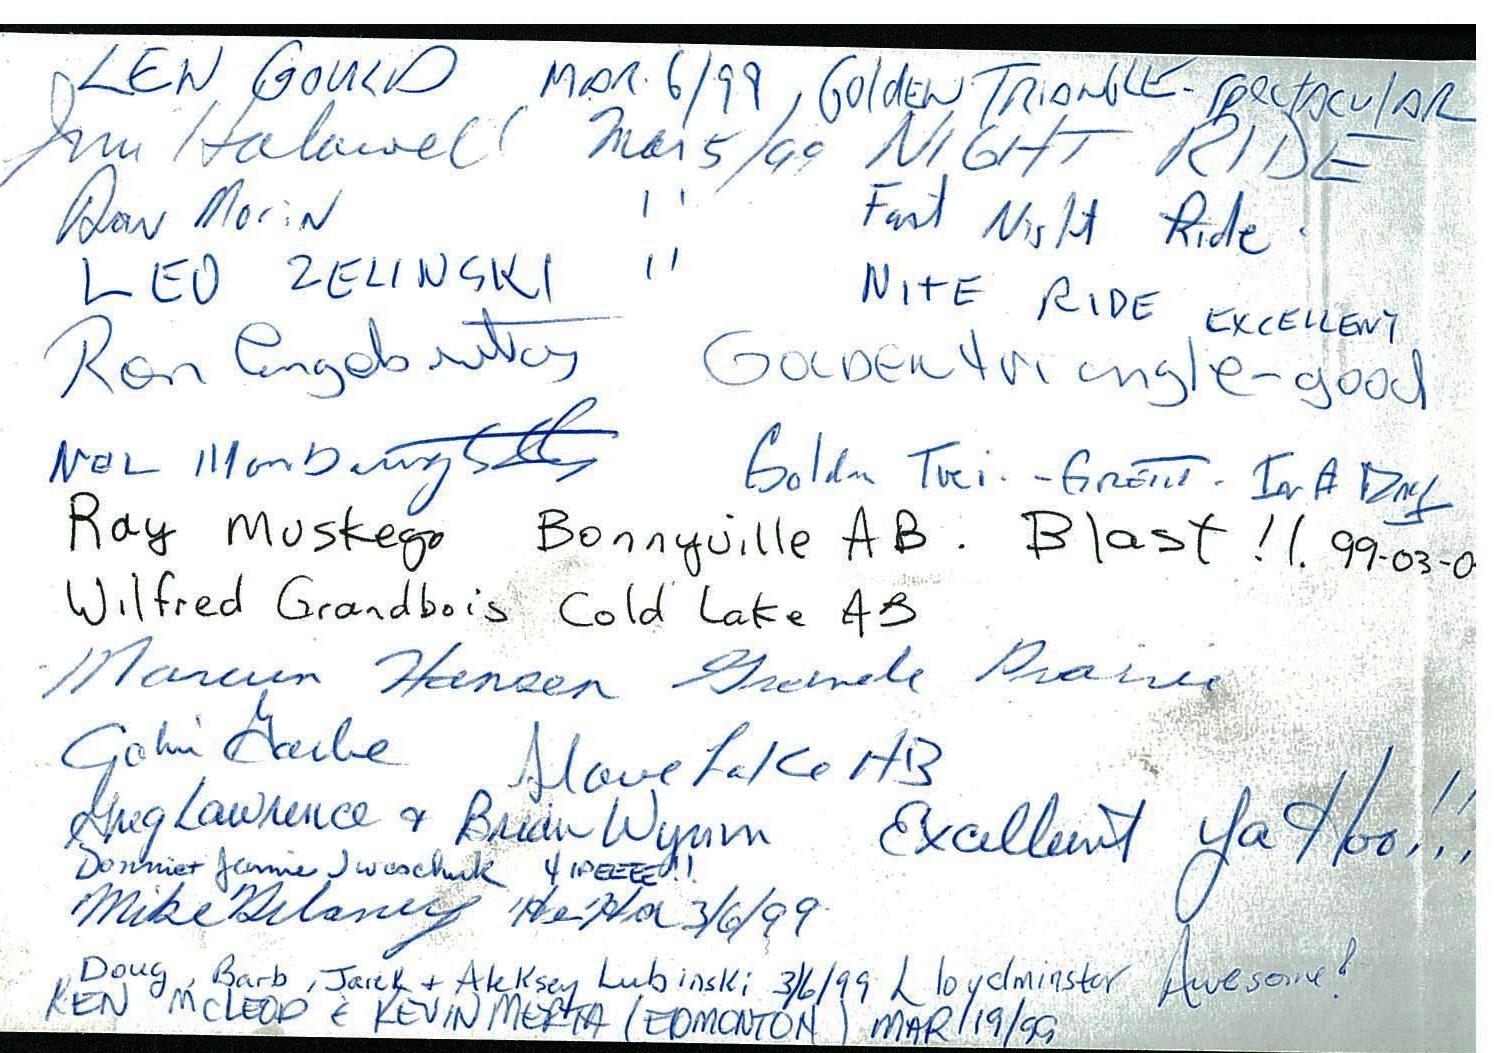 LEN GOULD MAR. 6/99, GOLDEN TRIANGLE - SPECTACULAR
Jim Halowell Mar 5/99 NIGHT RIDE
Dan Morin " Fast Night Ride.
LEO ZELINSKI " NITE RIDE EXCELLENT
Ron GOLDEN triangle - good
NEL Golden Tri. - GREAT - IN A DAY
Ray Muskego Bonnyville AB. Blast!!. 99-03-0
Wilfred Grandbois Cold Lake AB
Hansen Grande Prairie
Slave Lake AB
Greg Lawrence & Brian Wynn Excellent Ya Hoo!!!
Donnie + Jeannie Iwaschuk YIPEEEE!!
Mike Delaney 3/6/99
Doug, Barb, Jarek + Aleksey Lubinski 3/6/99 Lloydminster Awesome!
KEN MCLEOD & KEVIN MERTA (EDMONTON) MAR/19/99